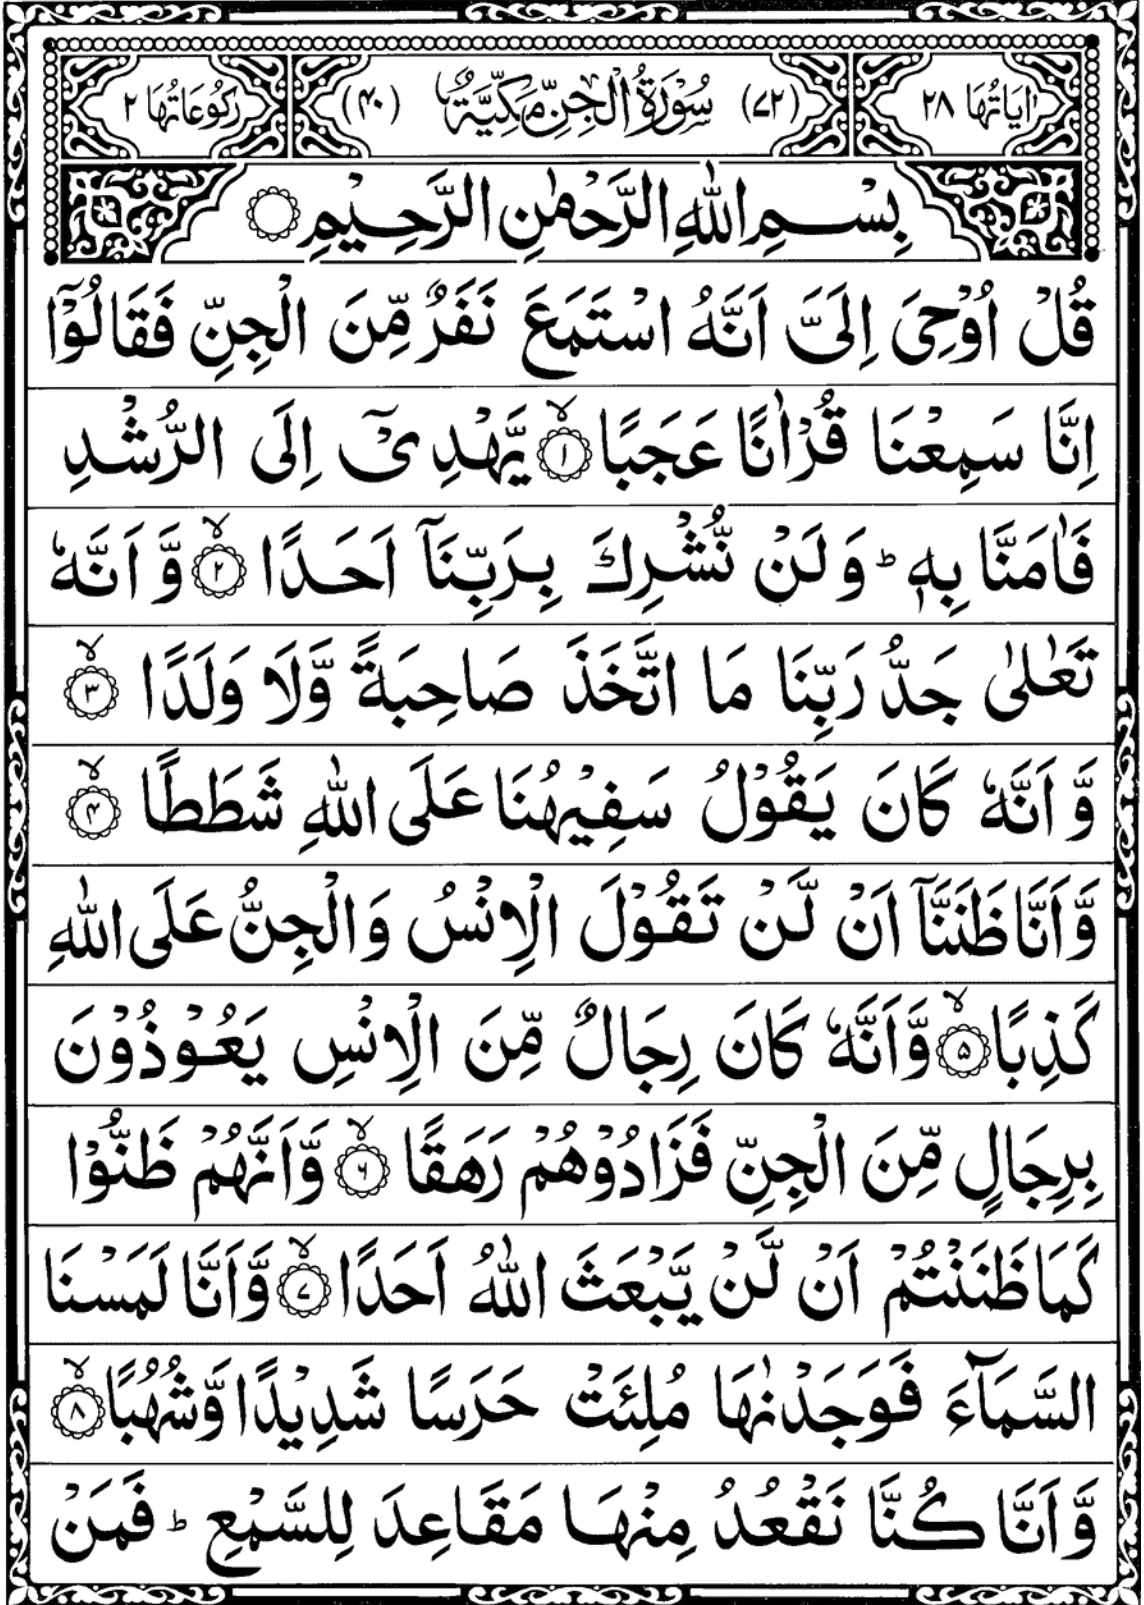 اٰيَاتُهَا ٢٨ (٧٢) سُوْرَةُ الْجِنِّ مَكِّيَّةٌ (٤٠) رُكُوْعَاتُهَا ٢
بِسْمِ اللّٰهِ الرَّحْمٰنِ الرَّحِيْمِ
قُلْ اُوْحِيَ اِلَيَّ اَنَّهُ اسْتَمَعَ نَفَرٌ مِّنَ الْجِنِّ فَقَالُوْٓا
اِنَّا سَمِعْنَا قُرْاٰنًا عَجَبًا ۙ‏﴿۱﴾ يَّهْدِيْٓ اِلَى الرُّشْدِ
فَاٰمَنَّا بِهٖ ؕ وَلَنْ نُّشْرِكَ بِرَبِّنَآ اَحَدًا ۙ‏﴿۲﴾ وَّاَنَّهٗ
تَعٰلٰى جَدُّ رَبِّنَا مَا اتَّخَذَ صَاحِبَةً وَّلَا وَلَدًا ۙ‏﴿۳﴾
وَّاَنَّهٗ كَانَ يَقُوْلُ سَفِيْهُنَا عَلَى اللّٰهِ شَطَطًا ۙ‏﴿۴﴾
وَّاَنَّا ظَنَنَّآ اَنْ لَّنْ تَقُوْلَ الْاِنْسُ وَالْجِنُّ عَلَى اللّٰهِ
كَذِبًا ۙ‏﴿۵﴾ وَّاَنَّهٗ كَانَ رِجَالٌ مِّنَ الْاِنْسِ يَعُوْذُوْنَ
بِرِجَالٍ مِّنَ الْجِنِّ فَزَادُوْهُمْ رَهَقًا ۙ‏﴿۶﴾ وَّاَنَّهُمْ ظَنُّوْا
كَمَا ظَنَنْتُمْ اَنْ لَّنْ يَّبْعَثَ اللّٰهُ اَحَدًا ۙ‏﴿۷﴾ وَّاَنَّا لَمَسْنَا
السَّمَآءَ فَوَجَدْنٰهَا مُلِئَتْ حَرَسًا شَدِيْدًا وَّشُهُبًا ۙ‏﴿۸﴾
وَّاَنَّا كُنَّا نَقْعُدُ مِنْهَا مَقَاعِدَ لِلسَّمْعِ ؕ فَمَنْ